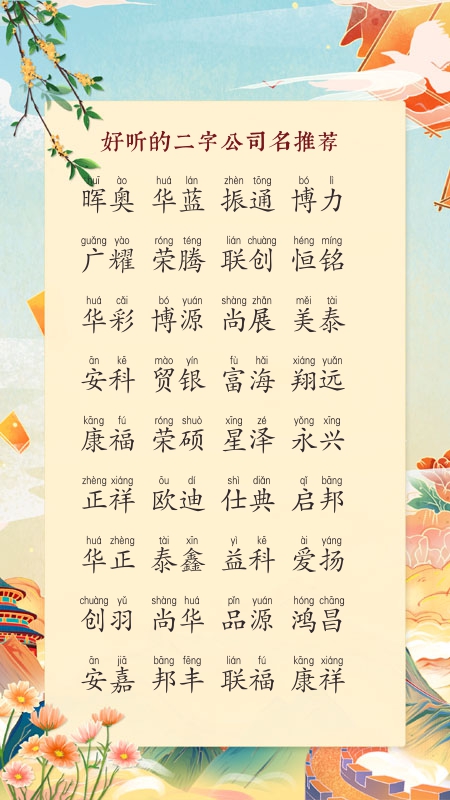 好听的二字公司名推荐
huī ào huá lán zhèn tōng bó lì
晖奥 华蓝 振通 博力
guǎng yào róng téng lián chuàng héng míng
广耀 荣腾 联创 恒铭
huá cǎi bó yuán shàng zhǎn měi tài
华彩 博源 尚展 美泰
ān kē mào yín fù hǎi xiáng yuǎn
安科 贸银 富海 翔远
kāng fú róng shuò xīng zé yǒng xīng
康福 荣硕 星泽 永兴
zhèng xiáng ōu dí shì diǎn qǐ bāng
正祥 欧迪 仕典 启邦
huá zhèng tài xīn yì kē ài yáng
华正 泰鑫 益科 爱扬
chuàng yǔ shàng huá pǐn yuán hóng chāng
创羽 尚华 品源 鸿昌
ān jiā bāng fēng lián fú kāng xiáng
安嘉 邦丰 联福 康祥